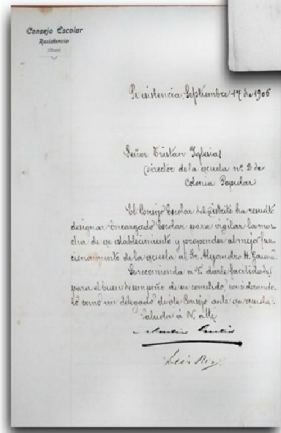 Consejo Escolar
Resistencia
(Chaco)
Resistencia, Septiembre 17 de 1906
Señor Tristán Iglesias
Director de la escuela nº 2 de
Colonia Popular
El Consejo Escolar del distrito ha resuelto
designar Encargado Escolar para vigilar la mar
cha de ese establecimiento y propender al mejor fun
cionamiento de la escuela al Sr. Alejandro H.
Se recomienda a Vd. darle facilidades
para el buen desempeño de su cometido, considerando
lo como un delegado de este Consejo ante esa escuela.
Saluda á Vd. atte.
Luis